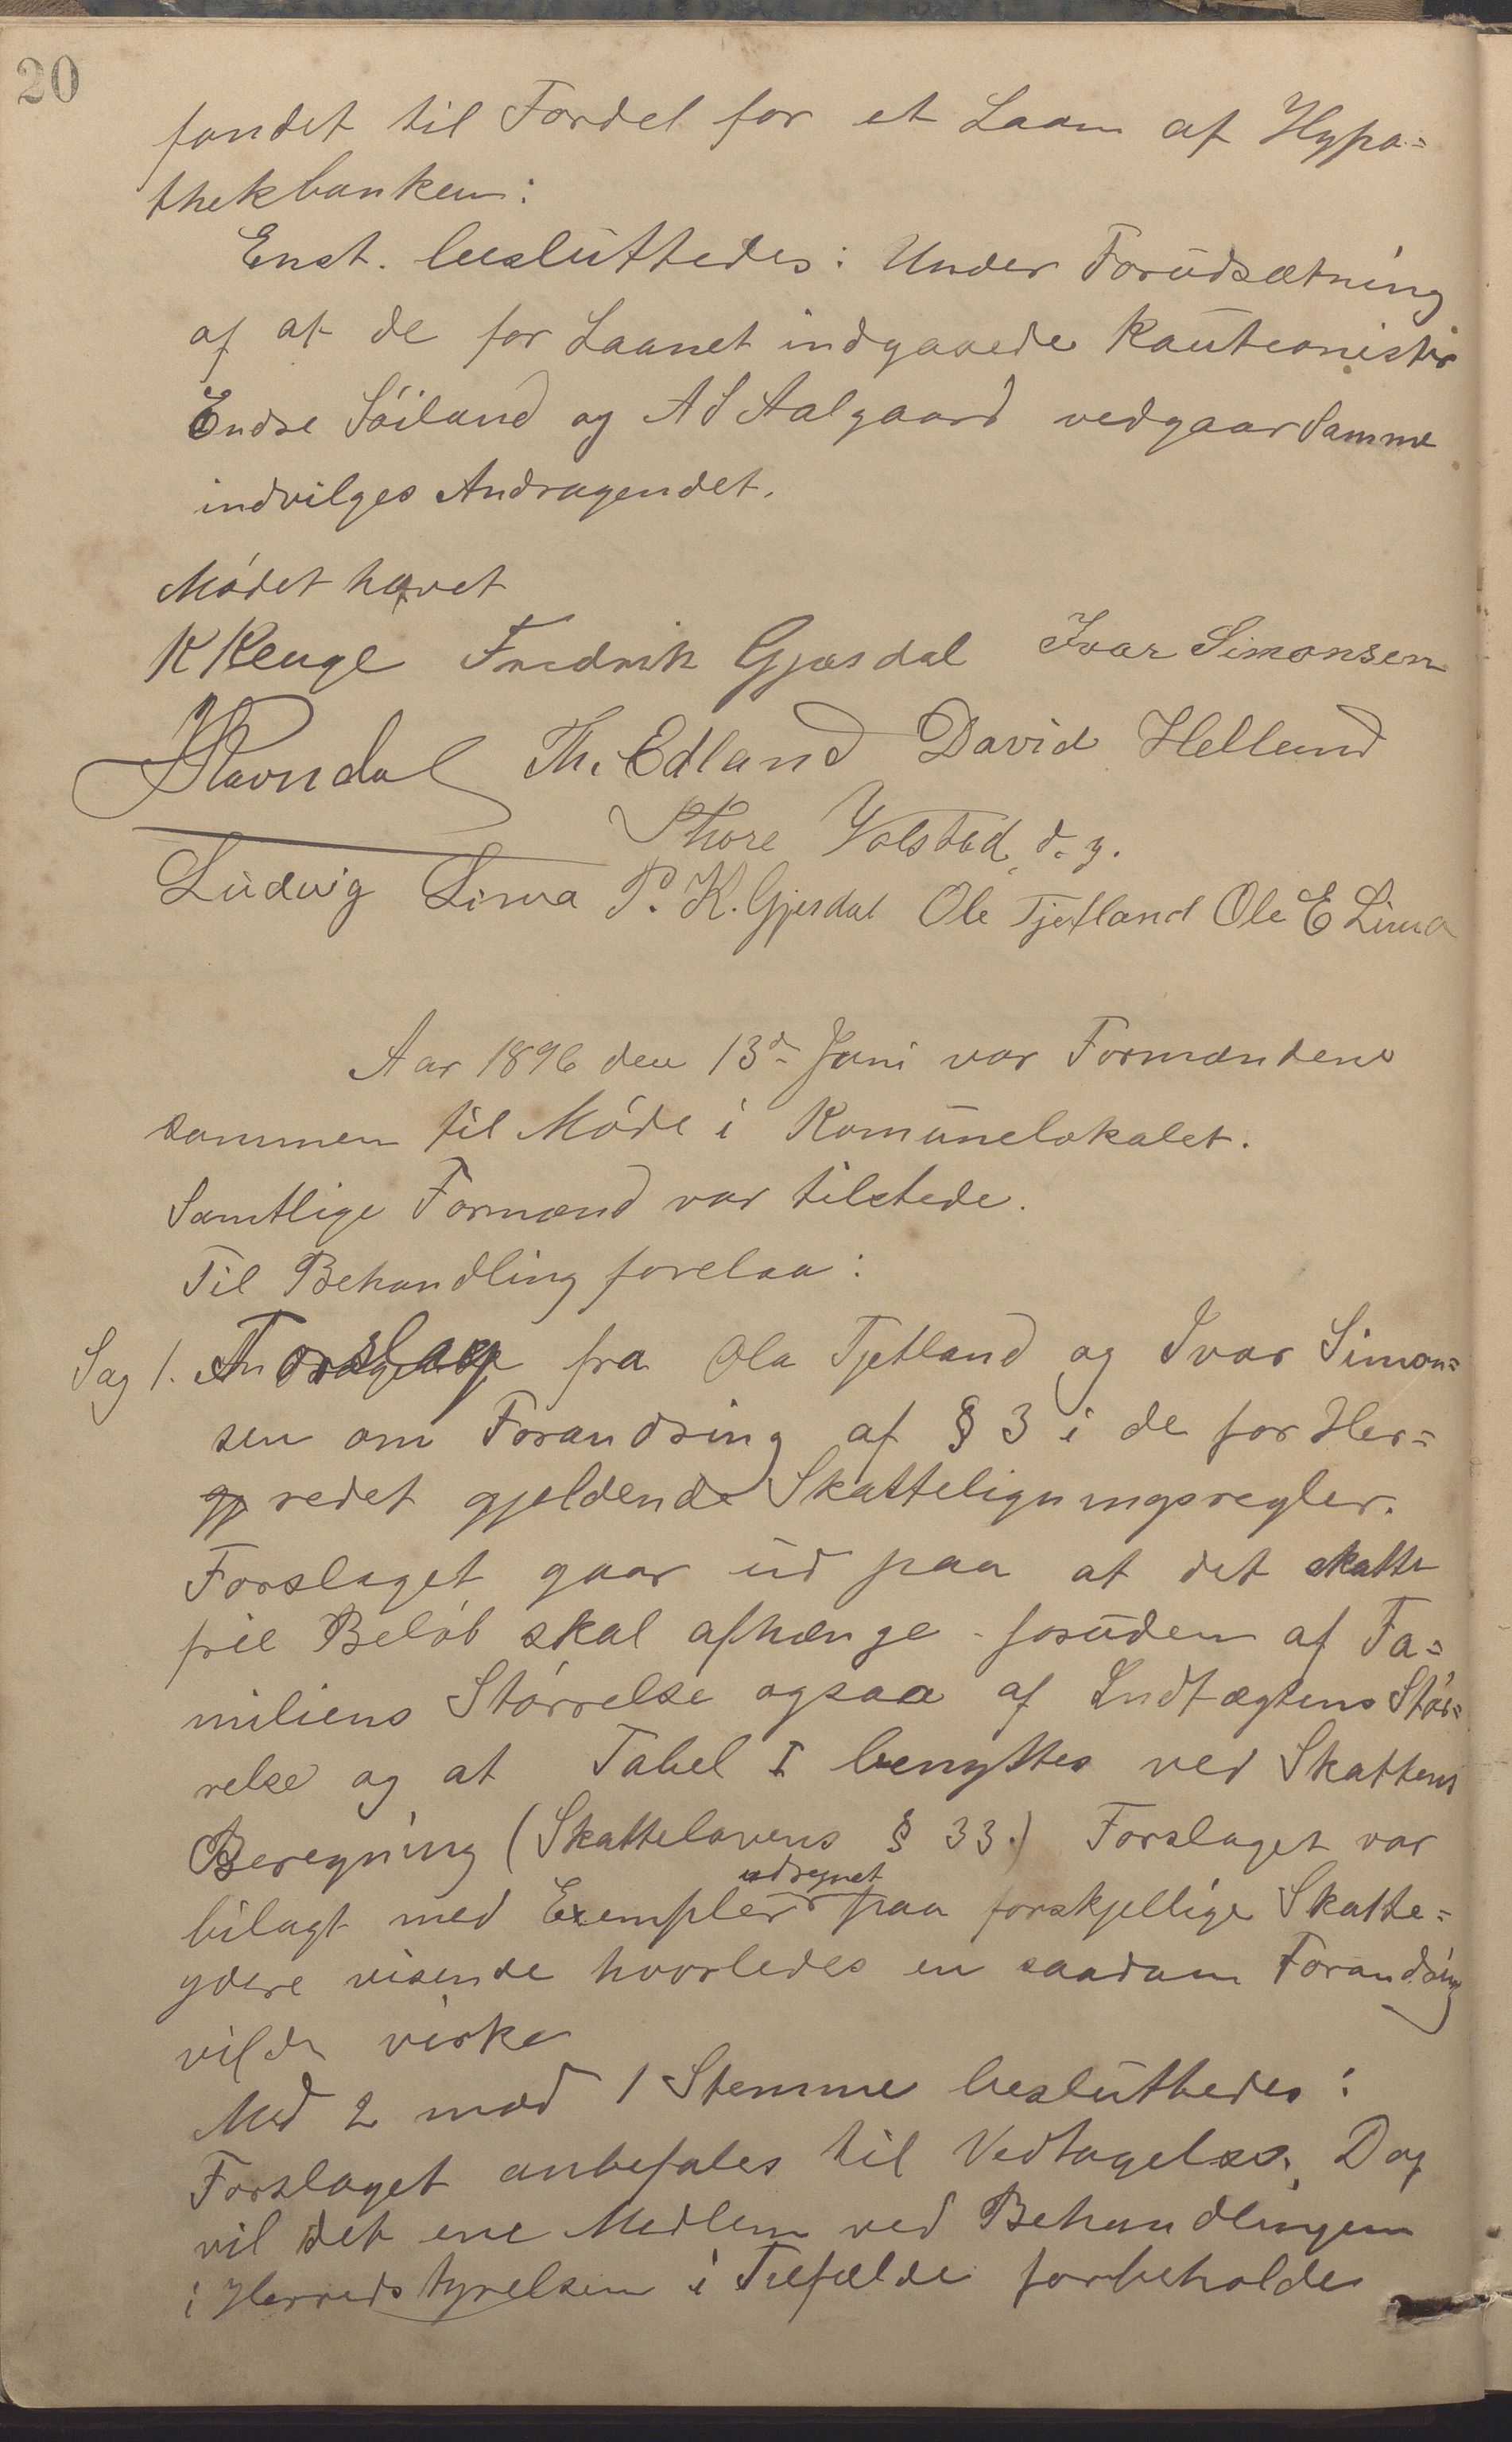 20
fondet til Fordel for et Laan af Hypo=
thekbanken:
Enst. besluttedes: Under Forudsætning
af at de for Laanet indgaaede Kautionister
Endse Söiland og A S Aalgaard vedgaar Samme
indvilges Andragendet.
Mödet hævet
K Kenge Fredrik Gjæsdal Ivar Simonsen
Th. Edland David Helland
Thore Valstad d. y.
Ludvig Lima P. K. Gjesdal Ole Tjetland Ole E Lima
Aar 1896 den 13de Juni var Formændene
sammen til Möde i Komunelokalet.
Samtlige Formænd var tilstede.
Til Behandling forelaa:
Sag 1. Forslag fra Ola Tjetland og Ivar Simon=
sen om Forandring af § 3 i de for Her=
redet gjeldende Skatteligningsregler.
Forslaget gaar ud paa at det skatte
frie Belöb skal afhænge foruden af Fa=
miliens Störrelse ogsaa af Indtægtens Stör=
relse og at Tabel I benyttes ved Skattens
Beregning (Skattelovens § 33.) Forslaget var
udregnet
bilagt med Exempler paa forskjellige Skatte=
ydere visende hvorledes en saadan Forandring
vilde virke
Med 2 mod 1 Stemme besluttedes:
Forslaget anbefales til Vedtagelse. Dog
vil det ene Medlem ved Behandlingen
i Herredstyrelsen i Tilfælde forbeholde